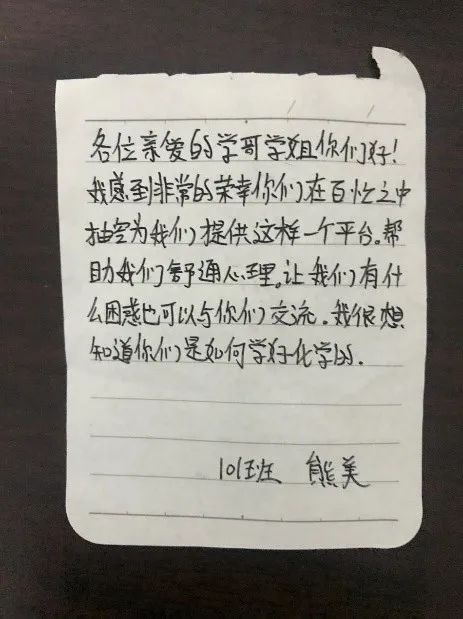 各位亲爱的学哥学姐你们好!
我感到非常的荣幸你们在百忙之中
抽空为我们提供这样一个平台。帮
助我们舒通心理。让我们有什
么困惑也可以与你们交流.我很想
知道你们是如何学好化学的.
101班 熊美